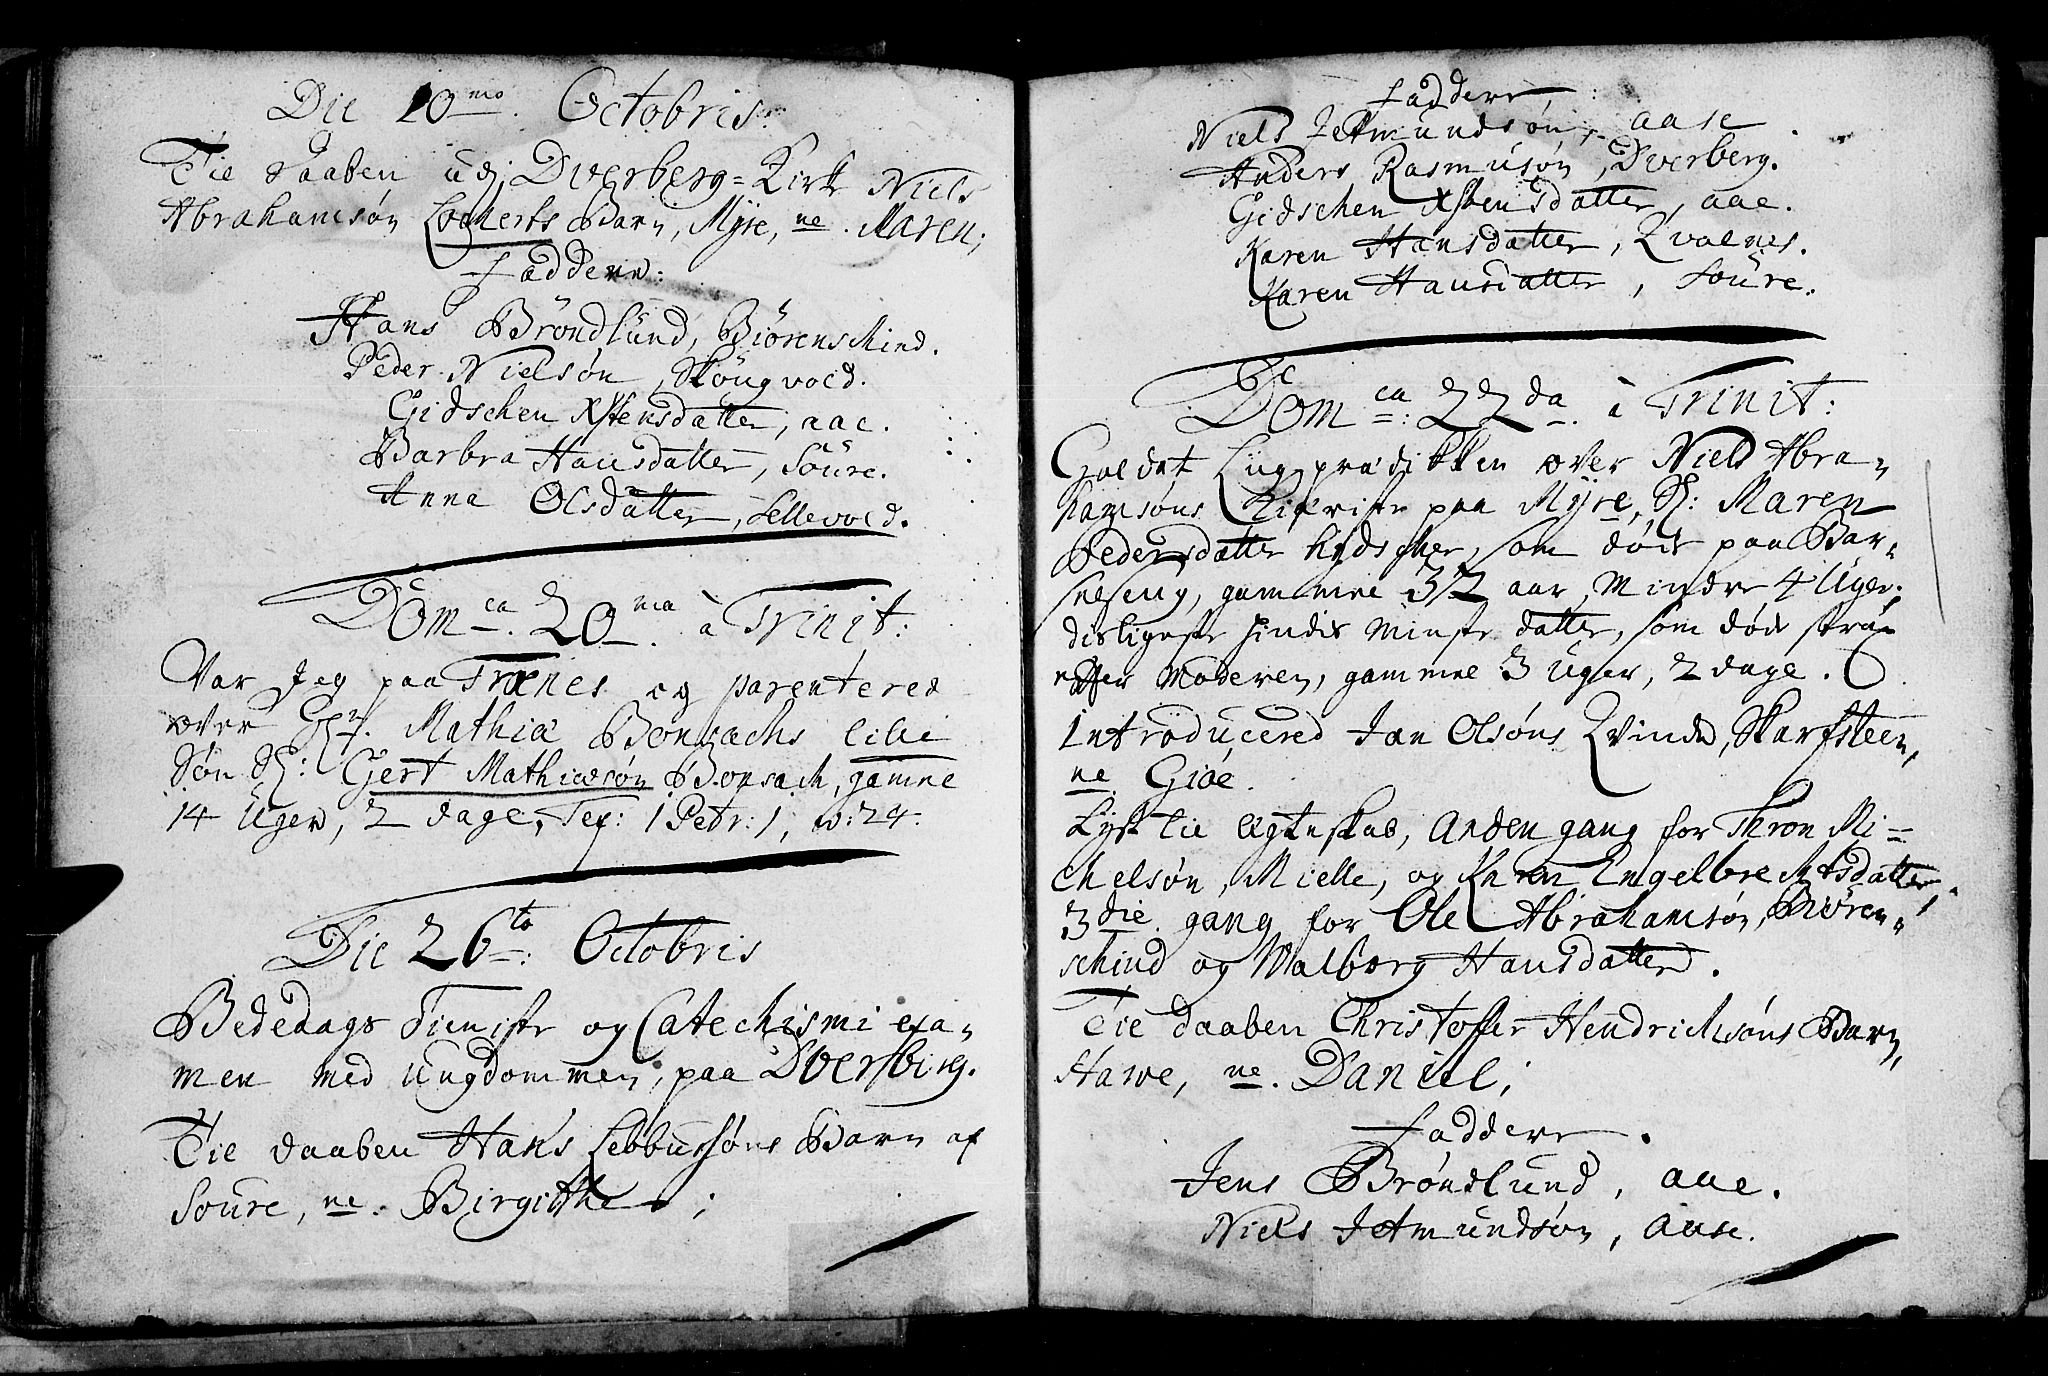 Die 10mo. Octobris.
Til daaben udj Dverberg-Kirke Niels
Abrahamsøn Lockerts Barn, Myre, ne. Maren;
Faddere:
Hans Bröndlund, Biörenschind.
Peder Nielsøn, Skougvold.
Gidschen Xstensdatter, aae.
Barbra Hansdatter, Soure.
Anna Olsdatter, Sellevold.
Domca. 20ma. à Trinit:
Var Jeg paa Træenes og parentered
over Mathiæ Bonsachs lille
Søn Sl: Gert Mathiæsøn Bonsach, gamle
14 Uger, 2 dage, Tex: 1 Petr: 1, v: 24.
Die 26to. Octobris
Bededags Tieniste og Catechismi exa-
men med Ungdommen, paa Dverberg.
Til daaben Hans Lebbertsøns Barn af
Soure, ne. Birgithe;
Faddere:
Niels Jetmundsøn, aase.
Anders Rasmusøn, Dverberg.
Gidschen Xstensdatter, aae.
Karen Hansdatter, Qvalnes.
Karen Hansdatter, Soure.
Domca: 22da. à Trinit:
Holdet Liigprædikken over Niels Abra-
hamsøns Kiereste paa Myre, Sl: Maren
Pedersdatter som døde paa Bar-
selseng, gammel 32 aar, mindre 4 Uger;
disligeste hindis minste datter, som døde strax
efter Moderen, gammel 3 Uger, 2 dage.
Introducered Jan Olsøns Qvinde, Skarfsteen,
ne. Gioe.
Lyst til Egteskab, Anden gang for Thron Mi-
chelsøn, Mielle, og Karen Engelbrechtsdatter,
3die gang for Ole Abrahamsøn, Biören-
schind og Malborg Hansdatter.
Til daaben Christoffer Hendrichsøns Barn,
Hawe, ne. Daniel;
Faddere.
Jens Brøndlund, aae.
Niels Jetmundsøn, Aase.